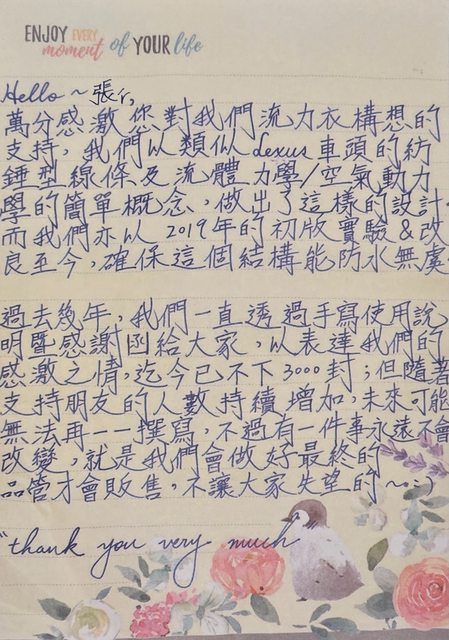 ENJOY EVERY moment of YOUR life
Hello~張r,
萬分感激您對我們流力衣構想的
支持,我們以類似Lexus車頭的紡
錘型線條及流體力學/空氣動力
學的簡單概念,做出了這樣的設計.
而我們亦以 2019年的初版實驗&改
良至今,確保這個結構能防水無虞.
過去幾年,我們一直透過手寫使用說
明暨感謝函給大家,以表達我們的
感激之情,迄今已不下3000封;但隨著
支持朋友的人數持續增加,未來可能
無法再一一撰寫,不過有一件事永遠不會
改變,就是我們會做好最終的
品管才會販售,不讓大家失望的~:)
"thank you very much